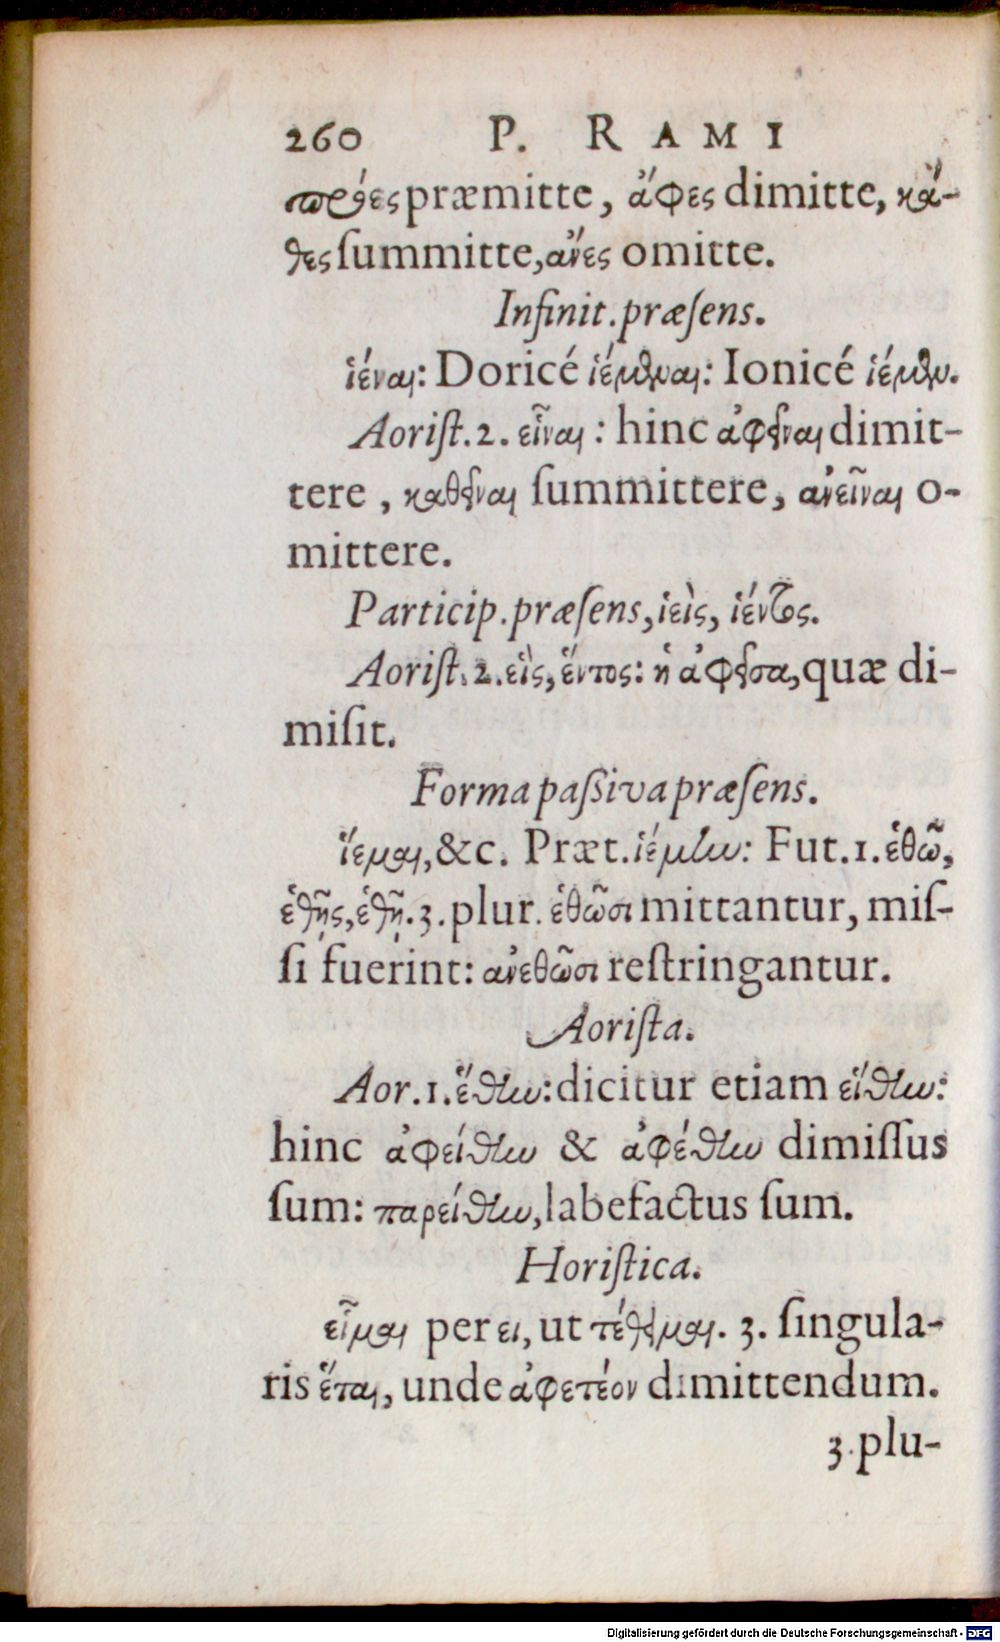 260 P. RAMI
πρόες præmitte, ἄφες dimitte, κά-
θες ſummitte, ἄνες omitte.
Infinit. præſens.
ἱέναι: Doricé ἱέμεναι: Ionicé ἱέμεν.
Aoriſt. 2. εἷναι: hinc ἀφεῖναι dimit-
tere, καθεῖναι ſummittere, ἀνεῖναι o-
mittere.
Particip. præſens, ἱεὶς, ἱέντος.
Aoriſt. 2. εἲς, ἕντος: ἡ ἀφεῖσα, quæ di-
miſit.
Forma paſſiva præſens.
ἵεμαι, &c. Præt. ἱέμην: Fut. 1. ἑθῶ,
ἑθῇς, ἑθῇ. 3. plur. ἑθῶσι mittantur, miſ-
ſi fuerint: ἀνεθῶσι reſtringantur.
Aoriſta.
Aor. 1. ἕθην: dicitur etiam εἵθην:
hinc ἀφείθην & ἀφέθην dimiſſus
ſum: παρείθην, labefactus ſum.
Horiſtica.
εἷμαι per ει, ut τέθειμαι. 3. ſingula-
ris ἕται, unde ἀφετέον dimittendum.
3. plu-
Digitalisierung gefördert durch die Deutsche Forschungsgemeinschaft - DFG